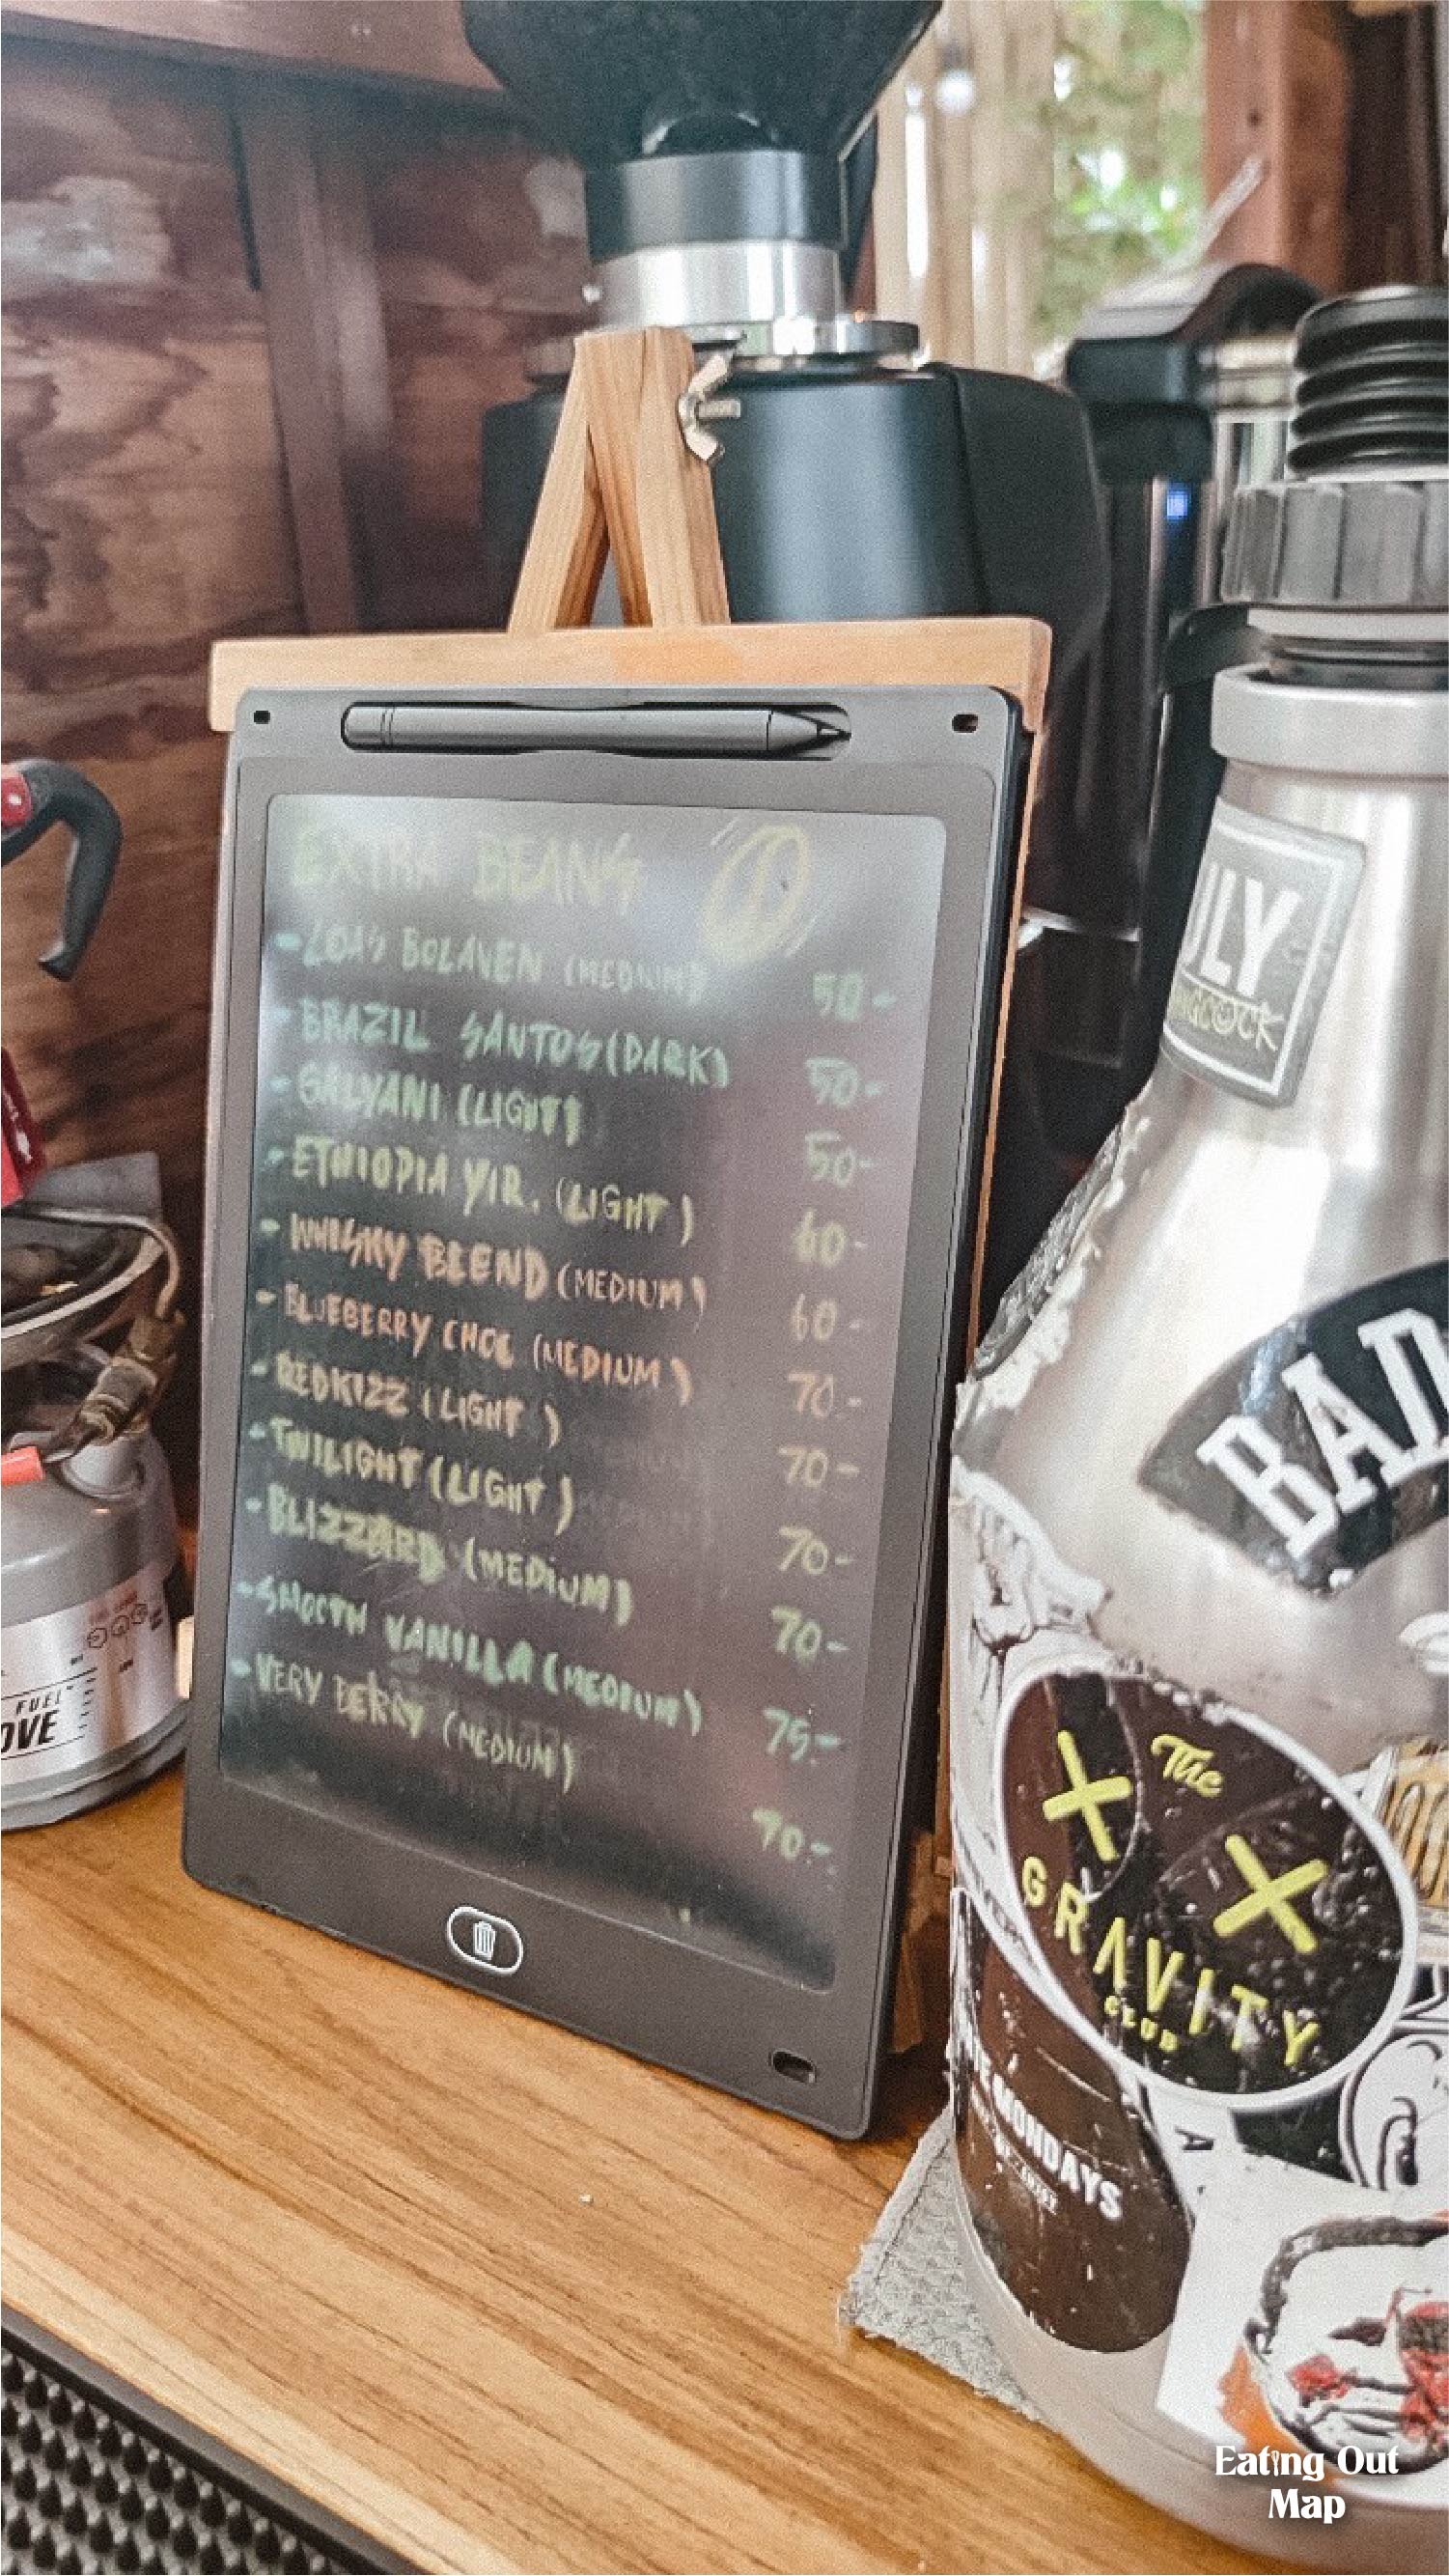 EXTRA BEANS
- LOAS BOLAVEN (MEDIUM) 50-
- BRAZIL SANTOS (DARK) 50-
- GALYANI (LIGHT) 50-
- ETHIOPIA YIR. (LIGHT) 60-
- WHISKY BLEND (MEDIUM) 60-
- BLUEBERRY CHOC (MEDIUM) 70.-
- REDKIZZ (LIGHT) 70-
- TWILIGHT (LIGHT) 70-
- BLIZZARD (MEDIUM) 70-
- SMOOTH VANILLA (MEDIUM) 75.-
- VERY BERRY (MEDIUM) 70.-
BAD
The
GRAVITY
CLUB
MONDAYS
FUEL
Eating Out
Map